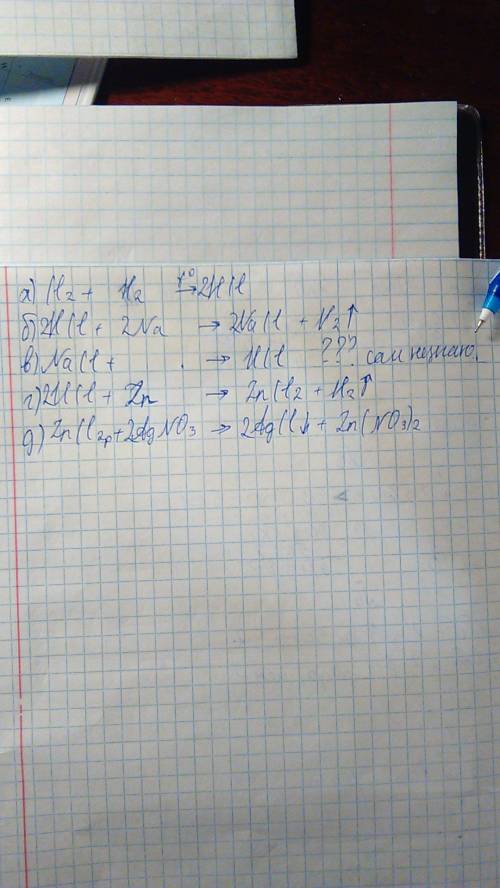 а) Cl₂ + H₂ t° → 2HCl
б) 2HCl + 2Na → 2NaCl + H₂↑
в) NaCl + . → HCl ??? сам незнаю.
г) 2HCl + Zn → ZnCl₂ + H₂↑
д) ZnCl₂ + 2AgNO₃ → 2AgCl↓ + Zn(NO₃)₂